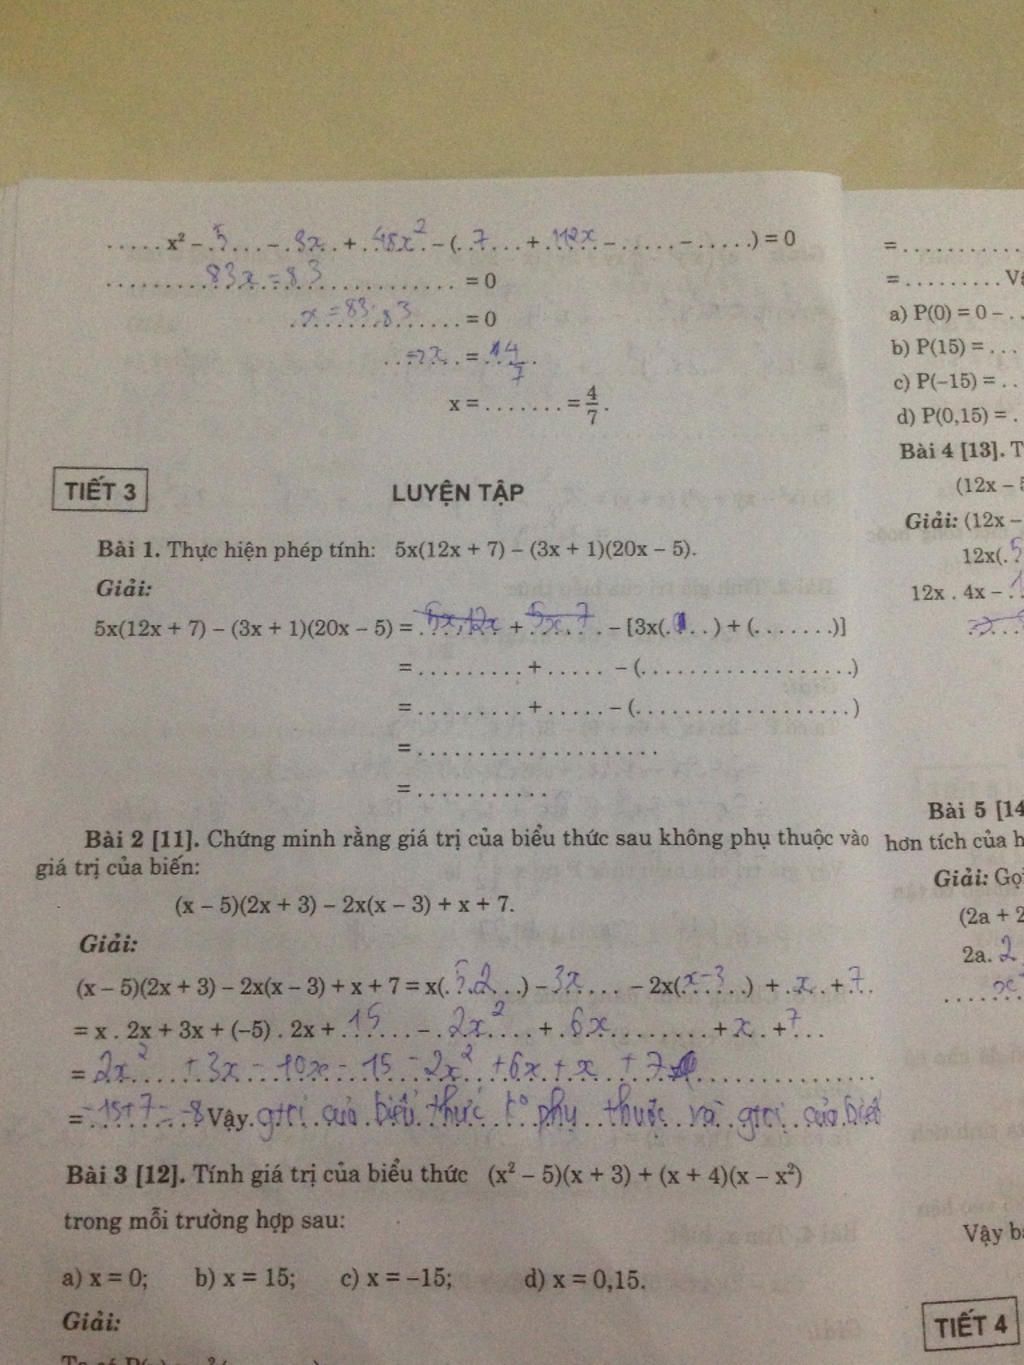 ..... x² – .5... – .3x.. + .48x².. – (..7... + .112x.. – ...... – .....) = 0
83x = 83 = 0
x = 83:83 = 0
= 14/7
x = ....... = 4/7.
TIẾT 3
LUYỆN TẬP
Bài 1. Thực hiện phép tính: 5x(12x + 7) – (3x + 1)(20x – 5).
Giải:
5x(12x + 7) – (3x + 1)(20x – 5) = 5x.12x + 5x.7 – [3x(......) + (.......)]
= ......... + ..... – (..................)
= ......... + ..... – (..................)
= ....................
= ...........
Bài 2 [11]. Chứng minh rằng giá trị của biểu thức sau không phụ thuộc vào
giá trị của biến:
(x – 5)(2x + 3) – 2x(x – 3) + x + 7.
Giải:
(x – 5)(2x + 3) – 2x(x – 3) + x + 7 = x(.5.2...) – 3x.... – 2x(x-3...) + .x.. + 7.
= x . 2x + 3x + (–5) . 2x + .15... – .2x².... + .6x........ + x.. + 7...
= 2x² + 3x – 10x – 15 – 2x² + 6x + x + 7
= -15+7 = -8 Vậy gtri của biểu thức ko phụ thuộc và gtri của biế
Bài 3 [12]. Tính giá trị của biểu thức (x² – 5)(x + 3) + (x + 4)(x – x²)
trong mỗi trường hợp sau:
a) x = 0; b) x = 15; c) x = –15; d) x = 0,15.
Giải:
= ............
= .......... Vậ
a) P(0) = 0 – ..
b) P(15) = ...
c) P(–15) = ..
d) P(0,15) = .
Bài 4 [13]. T
(12x – 5
Giải: (12x –
12x(.5
12x . 4x – .
Bài 5 [14
hơn tích của h
Giải: Gọi
(2a + 2
2a. 2
Vậy b
TIẾT 4